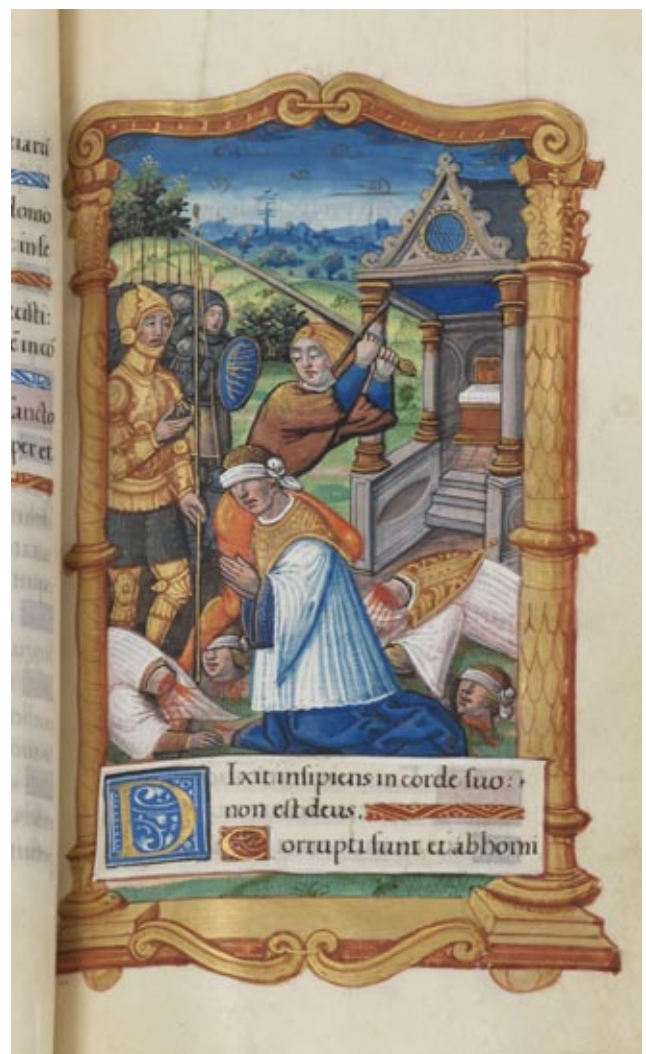 iarū
domo
in se
cisti:
ē in cō
sancto
per et
Dixit insipiens in corde suo:
non est deus.
Corrupti sunt et abhomi